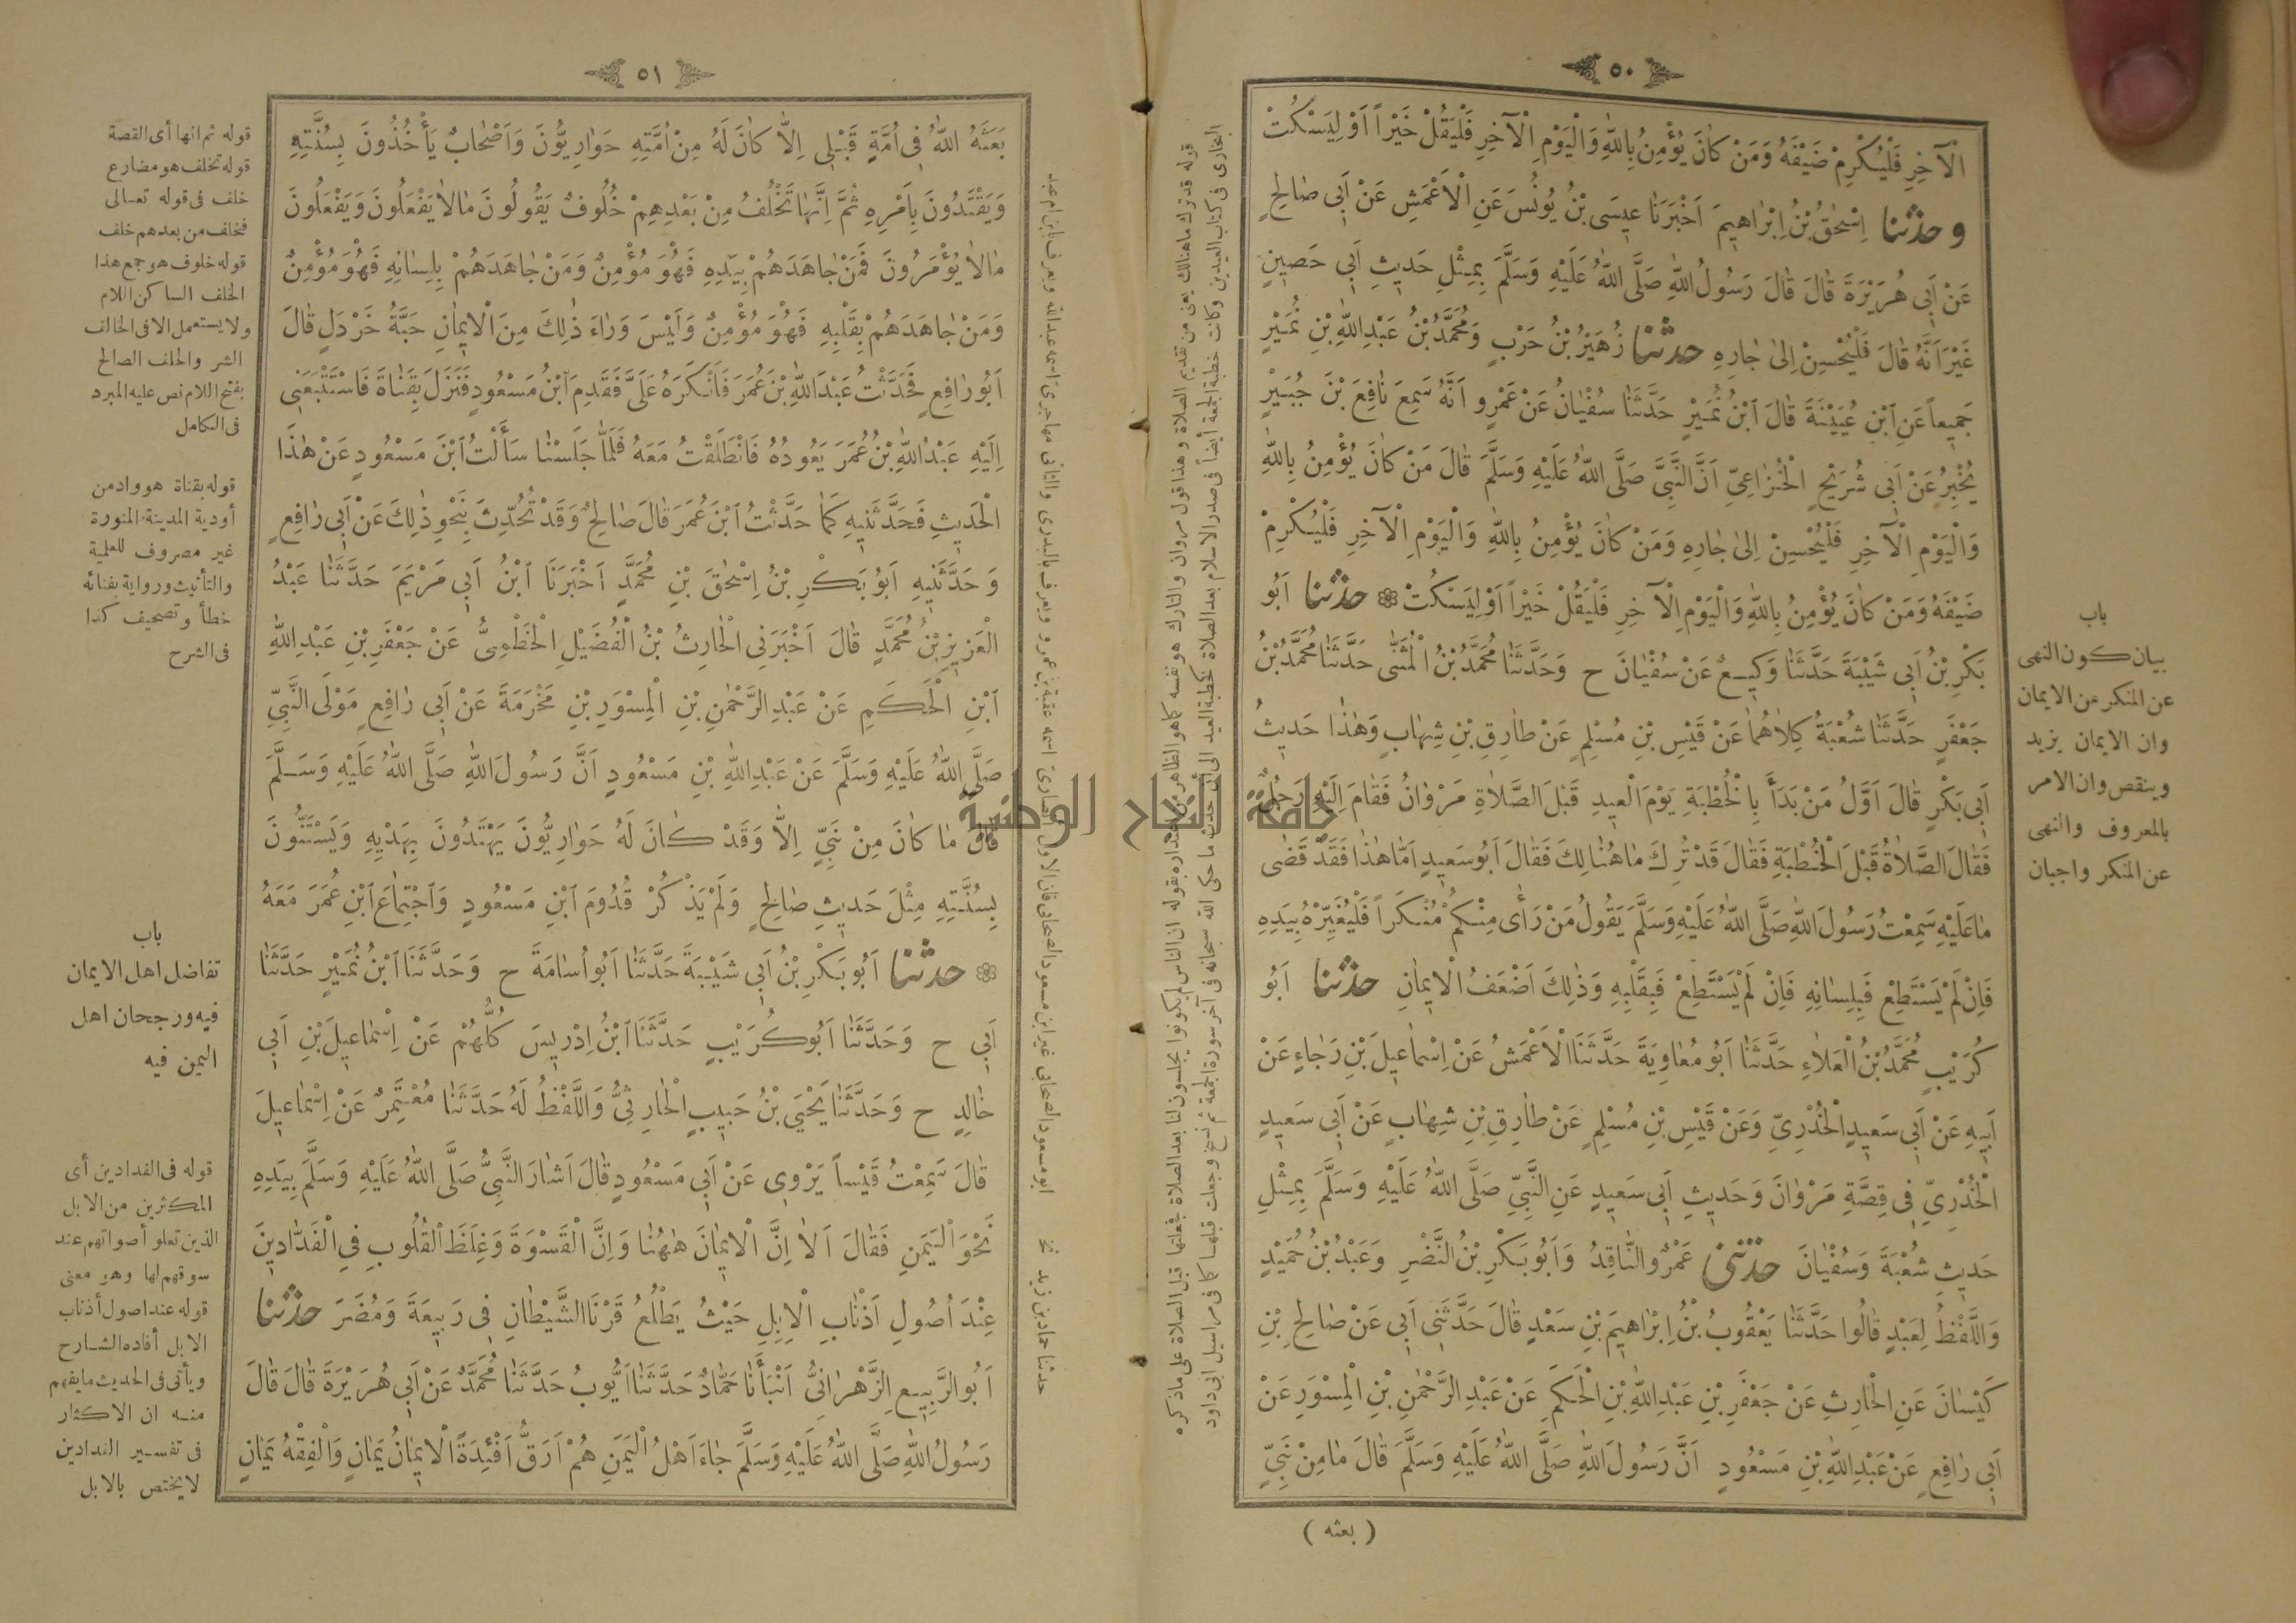 ٥٠
الْآخِرِ فَلْيُكْرِمْ ضَيْفَهُ وَمَنْ كَانَ يُؤْمِنُ بِاللّٰهِ وَالْيَوْمِ الْآخِرِ فَلْيَقُلْ خَيْراً اَوْ لِيَسْكُتْ
وحدثنا اِسْحٰقُ بْنُ اِبْرَاهِيمَ اَخْبَرَنَا عِيسَى بْنُ يُونُسَ عَنِ الْاَعْمَشِ عَنْ اَبِى صَالِحٍ
عَنْ اَبِى هُرَيْرَةَ قَالَ قَالَ رَسُولُ اللّٰهِ صَلَّى اللّٰهُ عَلَيْهِ وَسَلَّمَ بِمِثْلِ حَدِيثِ اَبِى حَصِينٍ
غَيْرَ اَنَّهُ قَالَ فَلْيُحْسِنْ اِلىٰ جَارِهِ حدثنا زُهَيْرُ بْنُ حَرْبٍ وَمُحَمَّدُ بْنُ عَبْدِ اللّٰهِ بْنِ نُمَيْرٍ
جَمِيعاً عَنِ ابْنِ عُيَيْنَةَ قَالَ ابْنُ نُمَيْرٍ حَدَّثَنَا سُفْيَانُ عَنْ عَمْرٍو اَنَّهُ سَمِعَ نَافِعَ بْنَ جُبَيْرٍ
يُخْبِرُ عَنْ اَبِى شُرَيْحٍ الْخُزَاعِيِّ اَنَّ النَّبِيَّ صَلَّى اللّٰهُ عَلَيْهِ وَسَلَّمَ قَالَ مَنْ كَانَ يُؤْمِنُ بِاللّٰهِ
وَالْيَوْمِ الْآخِرِ فَلْيُحْسِنْ اِلىٰ جَارِهِ وَمَنْ كَانَ يُؤْمِنُ بِاللّٰهِ وَالْيَوْمِ الْآخِرِ فَلْيُكْرِمْ
ضَيْفَهُ وَمَنْ كَانَ يُؤْمِنُ بِاللّٰهِ وَالْيَوْمِ الْآخِرِ فَلْيَقُلْ خَيْراً اَوْ لِيَسْكُتْ ❁ حدثنا اَبُو
بَكْرِ بْنُ اَبِى شَيْبَةَ حَدَّثَنَا وَكِيعٌ عَنْ سُفْيَانَ ح وَحَدَّثَنَا مُحَمَّدُ بْنُ الْمُثَنّٰى حَدَّثَنَا مُحَمَّدُ بْنُ
جَعْفَرٍ حَدَّثَنَا شُعْبَةُ كِلَاهُمَا عَنْ قَيْسِ بْنِ مُسْلِمٍ عَنْ طَارِقِ بْنِ شِهَابٍ وَهٰذَا حَدِيثُ
اَبِى بَكْرٍ قَالَ اَوَّلُ مَنْ بَدَأَ بِالْخُطْبَةِ يَوْمَ الْعِيدِ قَبْلَ الصَّلَاةِ مَرْوَانُ فَقَامَ اِلَيْهِ رَجُلٌ
فَقَالَ الصَّلَاةُ قَبْلَ الْخُطْبَةِ فَقَالَ قَدْ تُرِكَ مَا هُنَالِكَ فَقَالَ اَبُو سَعِيدٍ اَمَّا هٰذَا فَقَدْ قَضٰى
مَا عَلَيْهِ سَمِعْتُ رَسُولَ اللّٰهِ صَلَّى اللّٰهُ عَلَيْهِ وَسَلَّمَ يَقُولُ مَنْ رَأٰى مِنْكُمْ مُنْكَراً فَلْيُغَيِّرْهُ بِيَدِهِ
فَاِنْ لَمْ يَسْتَطِعْ فَبِلِسَانِهِ فَاِنْ لَمْ يَسْتَطِعْ فَبِقَلْبِهِ وَذٰلِكَ اَضْعَفُ الْاِيمَانِ حدثنا اَبُو
كُرَيْبٍ مُحَمَّدُ بْنُ الْعَلَاءِ حَدَّثَنَا اَبُو مُعَاوِيَةَ حَدَّثَنَا الْاَعْمَشُ عَنْ اِسْمَاعِيلَ بْنِ رَجَاءٍ عَنْ
اَبِيهِ عَنْ اَبِى سَعِيدٍ الْخُدْرِيِّ وَعَنْ قَيْسِ بْنِ مُسْلِمٍ عَنْ طَارِقِ بْنِ شِهَابٍ عَنْ اَبِى سَعِيدٍ
الْخُدْرِيِّ فِى قِصَّةِ مَرْوَانَ وَحَدِيثِ اَبِى سَعِيدٍ عَنِ النَّبِيِّ صَلَّى اللّٰهُ عَلَيْهِ وَسَلَّمَ بِمِثْلِ
حَدِيثِ شُعْبَةَ وَسُفْيَانَ حدثنى عَمْرٌو النَّاقِدُ وَاَبُو بَكْرِ بْنُ النَّضْرِ وَعَبْدُ بْنُ حُمَيْدٍ
وَاللَّفْظُ لِعَبْدٍ قَالُوا حَدَّثَنَا يَعْقُوبُ بْنُ اِبْرَاهِيمَ بْنِ سَعْدٍ قَالَ حَدَّثَنِى اَبِى عَنْ صَالِحِ بْنِ
كَيْسَانَ عَنِ الْحَارِثِ عَنْ جَعْفَرِ بْنِ عَبْدِ اللّٰهِ بْنِ الْحَكَمِ عَنْ عَبْدِ الرَّحْمٰنِ بْنِ الْمِسْوَرِ عَنْ
اَبِى رَافِعٍ عَنْ عَبْدِ اللّٰهِ بْنِ مَسْعُودٍ اَنَّ رَسُولَ اللّٰهِ صَلَّى اللّٰهُ عَلَيْهِ وَسَلَّمَ قَالَ مَا مِنْ نَبِيٍّ
( بعثه )
باب
بيان كون النهى
عن المنكر من الايمان
وان الايمان يزيد
وينقص وان الامر
بالمعروف والنهى
عن المنكر واجبان
قوله قد ترك ما هنالك يعنى من تقديم الصلاة وهذا قول مروان والتارك هو نفسه كما هو الظاهر من اعتذاره بقوله ان الناس لم يكونوا يجلسون لنا بعد الصلاة فجعلتها قبل الصلاة على ما ذكره
البخارى فى كتاب العيدين وكانت خطبة الجمعة أيضاً فى صدر الاسلام بعد الصلاة كخطبة العيد الى أن حدث ما حكى الله سبحانه فى آخر سورة الجمعة ثم نسخ وجعلت قبلها كما فى مراسيل ابى داود
جامعة النجاح الوطنية
٥١
بَعَثَهُ اللّٰهُ فِى اُمَّةٍ قَبْلِى اِلَّا كَانَ لَهُ مِنْ اُمَّتِهِ حَوَارِيُّونَ وَاَصْحَابٌ يَأْخُذُونَ بِسُنَّتِهِ
وَيَقْتَدُونَ بِاَمْرِهِ ثُمَّ اِنَّهَا تَخْلُفُ مِنْ بَعْدِهِمْ خُلُوفٌ يَقُولُونَ مَا لَا يَفْعَلُونَ وَيَفْعَلُونَ
مَا لَا يُؤْمَرُونَ فَمَنْ جَاهَدَهُمْ بِيَدِهِ فَهُوَ مُؤْمِنٌ وَمَنْ جَاهَدَهُمْ بِلِسَانِهِ فَهُوَ مُؤْمِنٌ
وَمَنْ جَاهَدَهُمْ بِقَلْبِهِ فَهُوَ مُؤْمِنٌ وَلَيْسَ وَرَاءَ ذٰلِكَ مِنَ الْاِيمَانِ حَبَّةُ خَرْدَلٍ قَالَ
اَبُو رَافِعٍ فَحَدَّثْتُ عَبْدَ اللّٰهِ بْنَ عُمَرَ فَاَنْكَرَهُ عَلَيَّ فَقَدِمَ ابْنُ مَسْعُودٍ فَنَزَلَ بِقَنَاةَ فَاسْتَتْبَعَنِى
اِلَيْهِ عَبْدُ اللّٰهِ بْنُ عُمَرَ يَعُودُهُ فَانْطَلَقْتُ مَعَهُ فَلَمَّا جَلَسْنَا سَأَلْتُ ابْنَ مَسْعُودٍ عَنْ هٰذَا
الْحَدِيثِ فَحَدَّثَنِيهِ كَمَا حَدَّثْتُ ابْنَ عُمَرَ قَالَ صَالِحٌ وَقَدْ تُحُدِّثَ بِنَحْوِ ذٰلِكَ عَنْ اَبِى رَافِعٍ
وَحَدَّثَنِيهِ اَبُو بَكْرِ بْنُ اِسْحٰقَ بْنِ مُحَمَّدٍ اَخْبَرَنَا ابْنُ اَبِى مَرْيَمَ حَدَّثَنَا عَبْدُ
الْعَزِيزِ بْنُ مُحَمَّدٍ قَالَ اَخْبَرَنِى الْحَارِثُ بْنُ الْفُضَيْلِ الْخَطْمِيُّ عَنْ جَعْفَرِ بْنِ عَبْدِ اللّٰهِ
ابْنِ الْحَكَمِ عَنْ عَبْدِ الرَّحْمٰنِ بْنِ الْمِسْوَرِ بْنِ مَخْرَمَةَ عَنْ اَبِى رَافِعٍ مَوْلَى النَّبِيِّ
صَلَّى اللّٰهُ عَلَيْهِ وَسَلَّمَ عَنْ عَبْدِ اللّٰهِ بْنِ مَسْعُودٍ اَنَّ رَسُولَ اللّٰهِ صَلَّى اللّٰهُ عَلَيْهِ وَسَلَّمَ
قَالَ مَا كَانَ مِنْ نَبِيٍّ اِلَّا وَقَدْ كَانَ لَهُ حَوَارِيُّونَ يَهْتَدُونَ بِهَدْيِهِ وَيَسْتَنُّونَ
بِسُنَّتِهِ مِثْلَ حَدِيثِ صَالِحٍ وَلَمْ يَذْكُرْ قُدُومَ ابْنِ مَسْعُودٍ وَاجْتِمَاعَ ابْنِ عُمَرَ مَعَهُ
❁ حدثنا اَبُو بَكْرِ بْنُ اَبِى شَيْبَةَ حَدَّثَنَا اَبُو اُسَامَةَ ح وَحَدَّثَنَا ابْنُ نُمَيْرٍ حَدَّثَنَا
اَبِى ح وَحَدَّثَنَا اَبُو كُرَيْبٍ حَدَّثَنَا ابْنُ اِدْرِيسَ كُلُّهُمْ عَنْ اِسْمَاعِيلَ بْنِ اَبِى
خَالِدٍ ح وَحَدَّثَنَا يَحْيَى بْنُ حَبِيبٍ الْحَارِثِيُّ وَاللَّفْظُ لَهُ حَدَّثَنَا مُعْتَمِرٌ عَنْ اِسْمَاعِيلَ
قَالَ سَمِعْتُ قَيْساً يَرْوِى عَنْ اَبِى مَسْعُودٍ قَالَ اَشَارَ النَّبِيُّ صَلَّى اللّٰهُ عَلَيْهِ وَسَلَّمَ بِيَدِهِ
نَحْوَ الْيَمَنِ فَقَالَ اَلَا اِنَّ الْاِيمَانَ هٰهُنَا وَاِنَّ الْقَسْوَةَ وَغِلَظَ الْقُلُوبِ فِى الْفَدَّادِينَ
عِنْدَ اُصُولِ اَذْنَابِ الْاِبِلِ حَيْثُ يَطْلُعُ قَرْنَا الشَّيْطَانِ فِى رَبِيعَةَ وَمُضَرَ حدثنا
اَبُو الرَّبِيعِ الزَّهْرَانِيُّ اَنْبَأَنَا حَمَّادٌ حَدَّثَنَا اَيُّوبُ حَدَّثَنَا مُحَمَّدٌ عَنْ اَبِى هُرَيْرَةَ قَالَ قَالَ
رَسُولُ اللّٰهِ صَلَّى اللّٰهُ عَلَيْهِ وَسَلَّمَ جَاءَ اَهْلُ الْيَمَنِ هُمْ اَرَقُّ اَفْئِدَةً الْاِيمَانُ يَمَانٍ وَالْفِقْهُ يَمَانٍ
قوله ثم انها أى القصة
قوله تخلف هو مضارع
خلف فى قوله تعالى
فخلف من بعدهم خلف
قوله خلوف هو جمع هذا
الخلف الساكن اللام
ولا يستعمل الا فى الخالف
الشر والخلف الصالح
بفتح اللام نص عليه المبرد
فى الكامل
قوله بقناة هو واد من
أودية المدينة المنورة
غير مصروف للعلمية
والتأنيث ورواية بفنائه
خطأ وتصحيف كذا
فى الشرح
باب
تفاضل اهل الايمان
فيه ورجحان اهل
اليمن فيه
قوله فى الفدادين أى
المكثرين من الابل
الذين تعلو أصواتهم عند
سوقهم لها وهو معنى
قوله عند اصول أذناب
الابل أفاده الشارح
ويأتى فى الحديث ما يفهم
منه ان الاكثار
فى تفسير الفدادين
لا يختص بالابل
ابو مسعود الصحابى غير ابن مسعود الصحابى فان الاول أنصارى اسمه عقبة بن عمرو ويعرف بالبدرى والثانى مهاجرى اسمه عبد الله ويعرف بابن ام عبد
حدثنا حماد بن زيد نخ